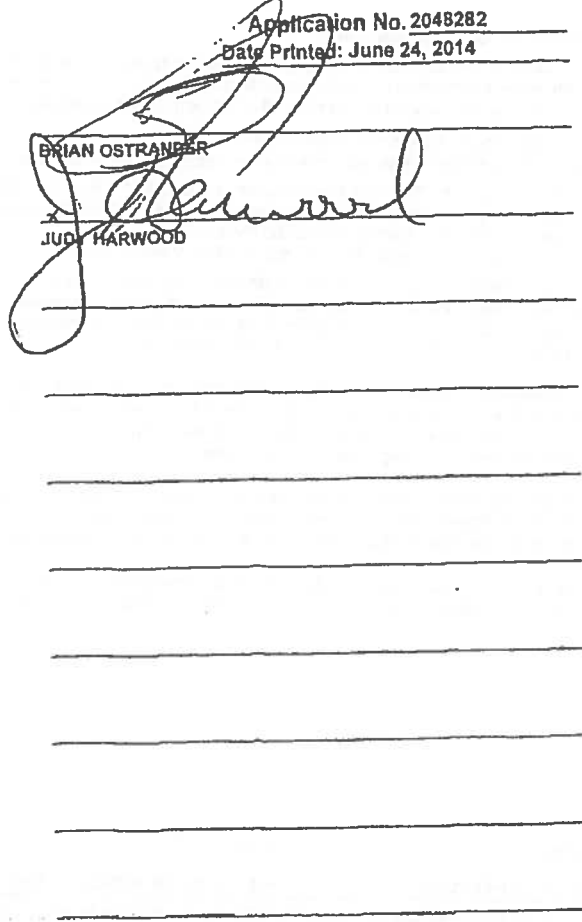 Application No. 2048282
Date Printed: June 24, 2014
BRIAN OSTRANDER
JUDY HARWOOD